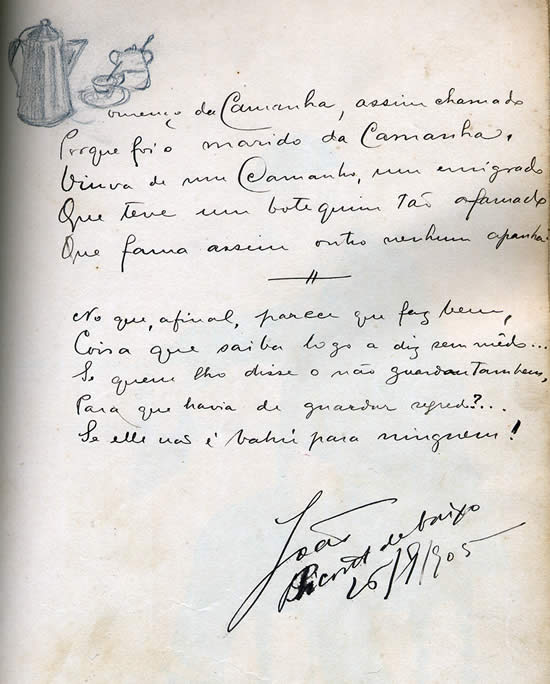 ourenço da Camanha, assim chamado
Porque foi o marido da Camanha,
Viuva de um Camanho, um emigrado
Que teve um botequim tão afamado
Que fama assim outro nenhum apanha!
No que, afinal, parece que faz bem,
Coisa que saiba logo a diz sem mêdo...
Se quem lho disse o não guardou tambem,
Para que havia de guardar segredo?...
Se elle nas é bahú para ninguem!
João
de baixo
26/9/905